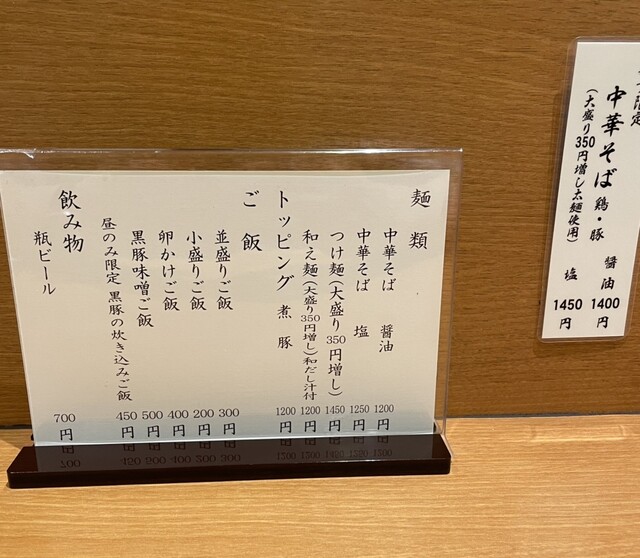 麺類
中華そば 醤油 1200円
中華そば 塩 1250円
つけ麺(大盛り350円増し) 1450円
和え麺(大盛り350円増し)和だし汁付 1200円
トッピング 煮豚 1200円
ご飯
並盛りご飯 300円
小盛りご飯 200円
卵かけご飯 400円
黒豚味噌ご飯 500円
昼のみ限定 黒豚の炊き込みご飯 450円
飲み物
瓶ビール 700円
限定
中華そば 鶏・豚 醤油 1400円
(大盛り350円増し太麺使用) 塩 1450円